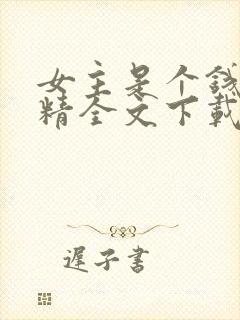 女主是个钱
精全文下载
遲子書